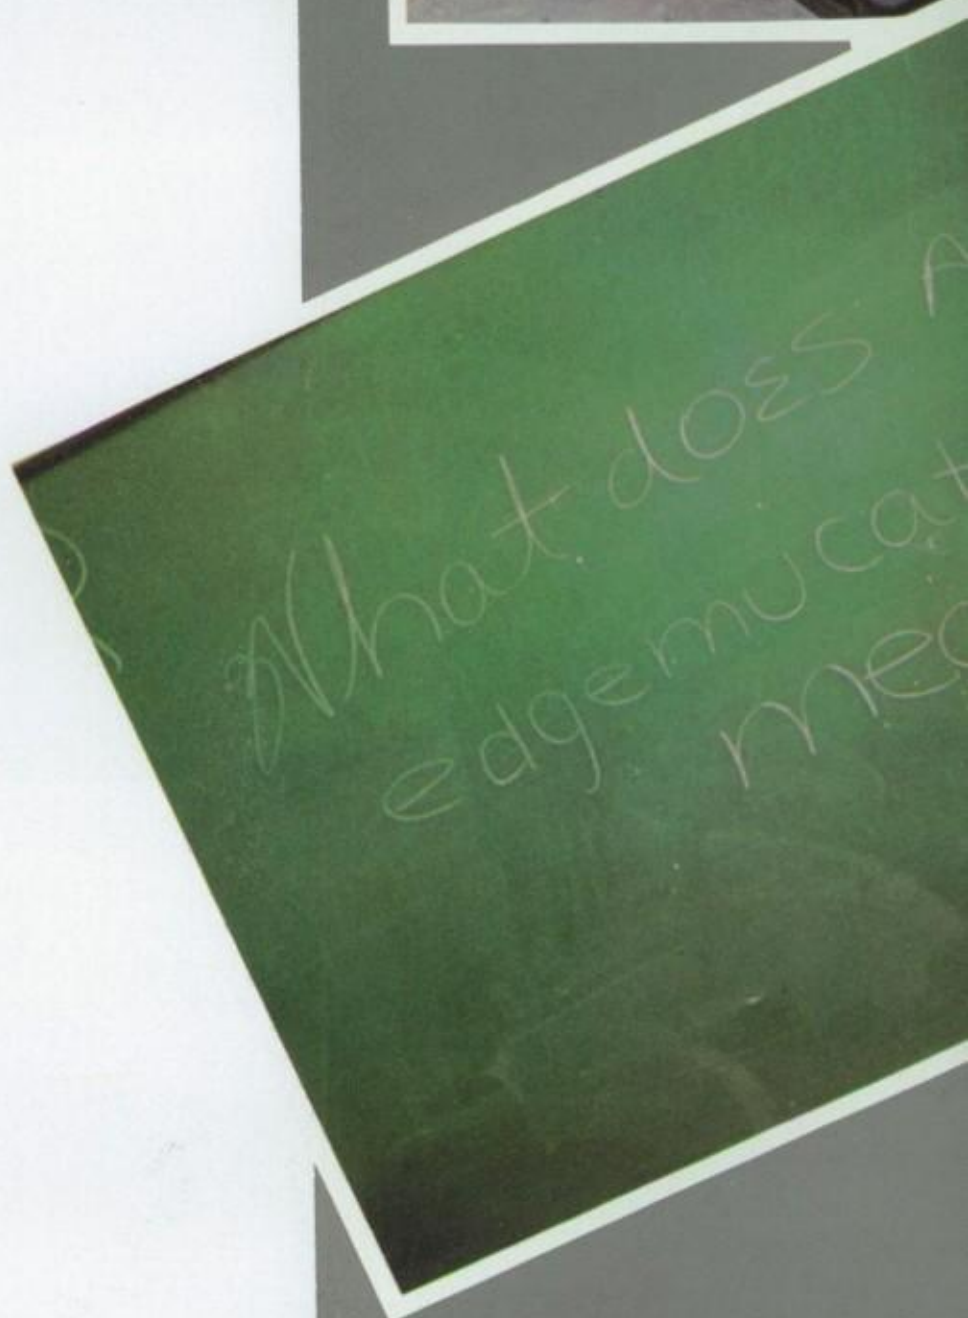 What does A
edgemucat
mea